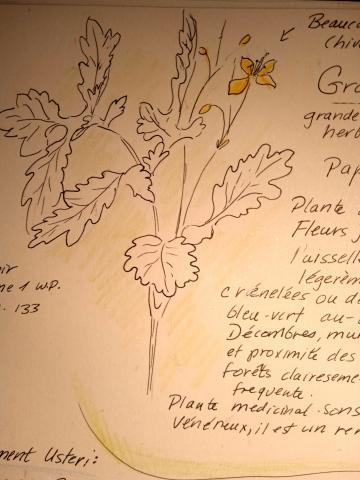 Beauc
Chiv
Gra
grande
herb
Pap
Plante
Fleurs j
l'aissell
légèrem
crénelées ou de
bleu-vert au-
Décombres, mur
et proximité des
forêts clairesemé
frequente.
Plante medicinal sons
vénéneux, il est un ren
oir
me 1 w.p.
. 133
ment Usteri: